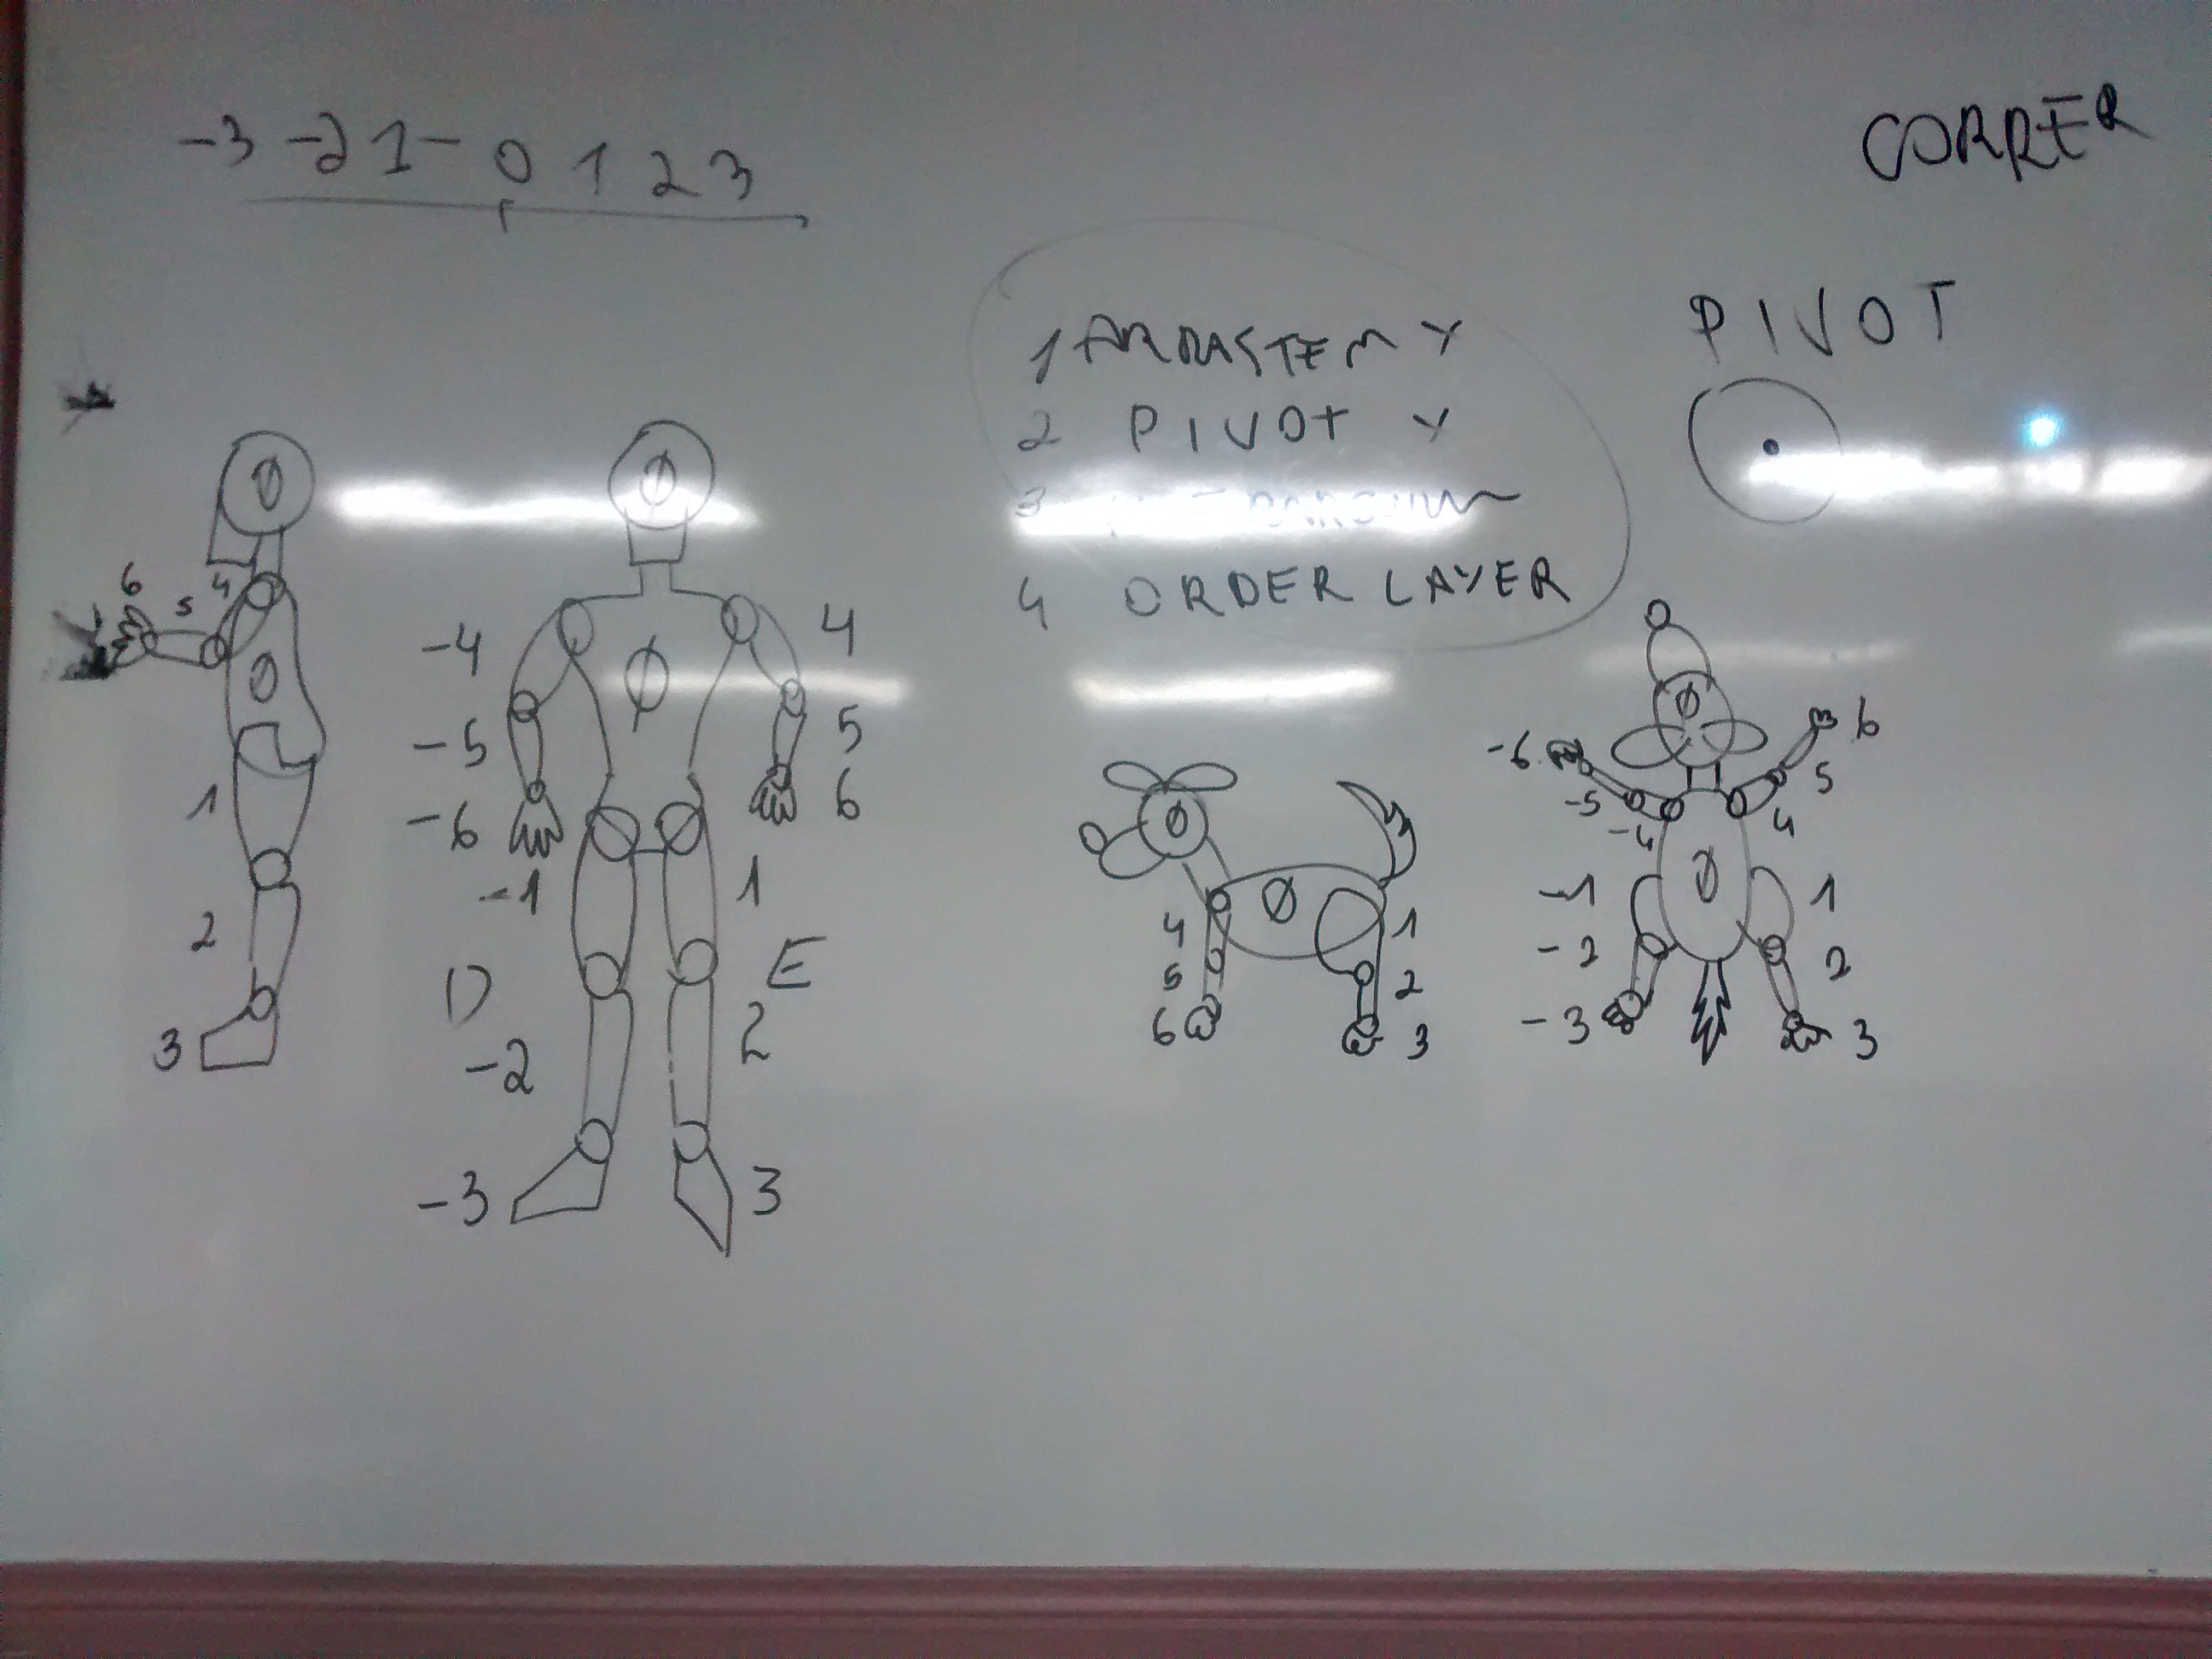 -3 -2 1- 0 1 2 3
CORRER
1 ARRASTEM Y
2 PIVOT Y
3
4 ORDER LAYER
PIVOT
Ø
6 5 4
Ø
1
2
3
Ø
-4 Ø 4
-5 5
-6 6
-1 1
D E
-2 2
-3 3
Ø
Ø
4 1
5 2
6 3
Ø
-6 6
-5 5
-4 4
Ø
-1 1
-2 2
-3 3